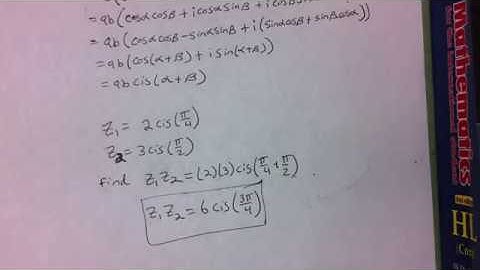 = ab(cosα cosβ + i cosα sinβ + i cos
= ab(cosα cosβ - sinα sinβ + i(sinα cosβ + sinβ cosα))
= ab(cos(α+β) + i sin(α+β))
= ab cis(α+β)
z₁ = 2cis(π/4)
z₂ = 3cis(π/2)
find z₁z₂ = (2)(3)cis(π/4 + π/2)
z₁z₂ = 6cis(3π/4)
Mathematics
HL